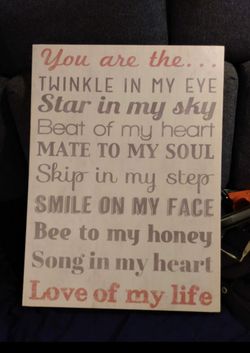 You are the...
TWINKLE IN MY EYE
Star in my sky
Beat of my heart
MATE TO MY SOUL
Skip in my step
SMILE ON MY FACE
Bee to my honey
Song in my heart
Love of my life